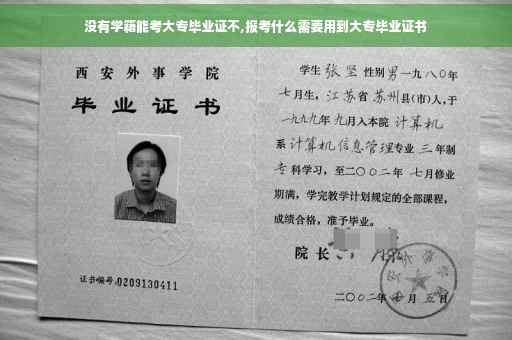 没有学藉能考大专毕业证不,报考什么需要用到大专毕业证书
西安外事学院
毕业证书
证书编号:0209130411
学生 张坚 性别 男 一九八〇年
七月生，江苏省 苏州 县(市)人,于
一九九九年 九月入本院 计算机
系 计算机信息管理 专业 三 年制
专 科学习，至二〇〇二年 七月修业
期满，学完教学计划规定的全部课程，
成绩合格，准予毕业。
院 长
二〇〇二年 月 五日